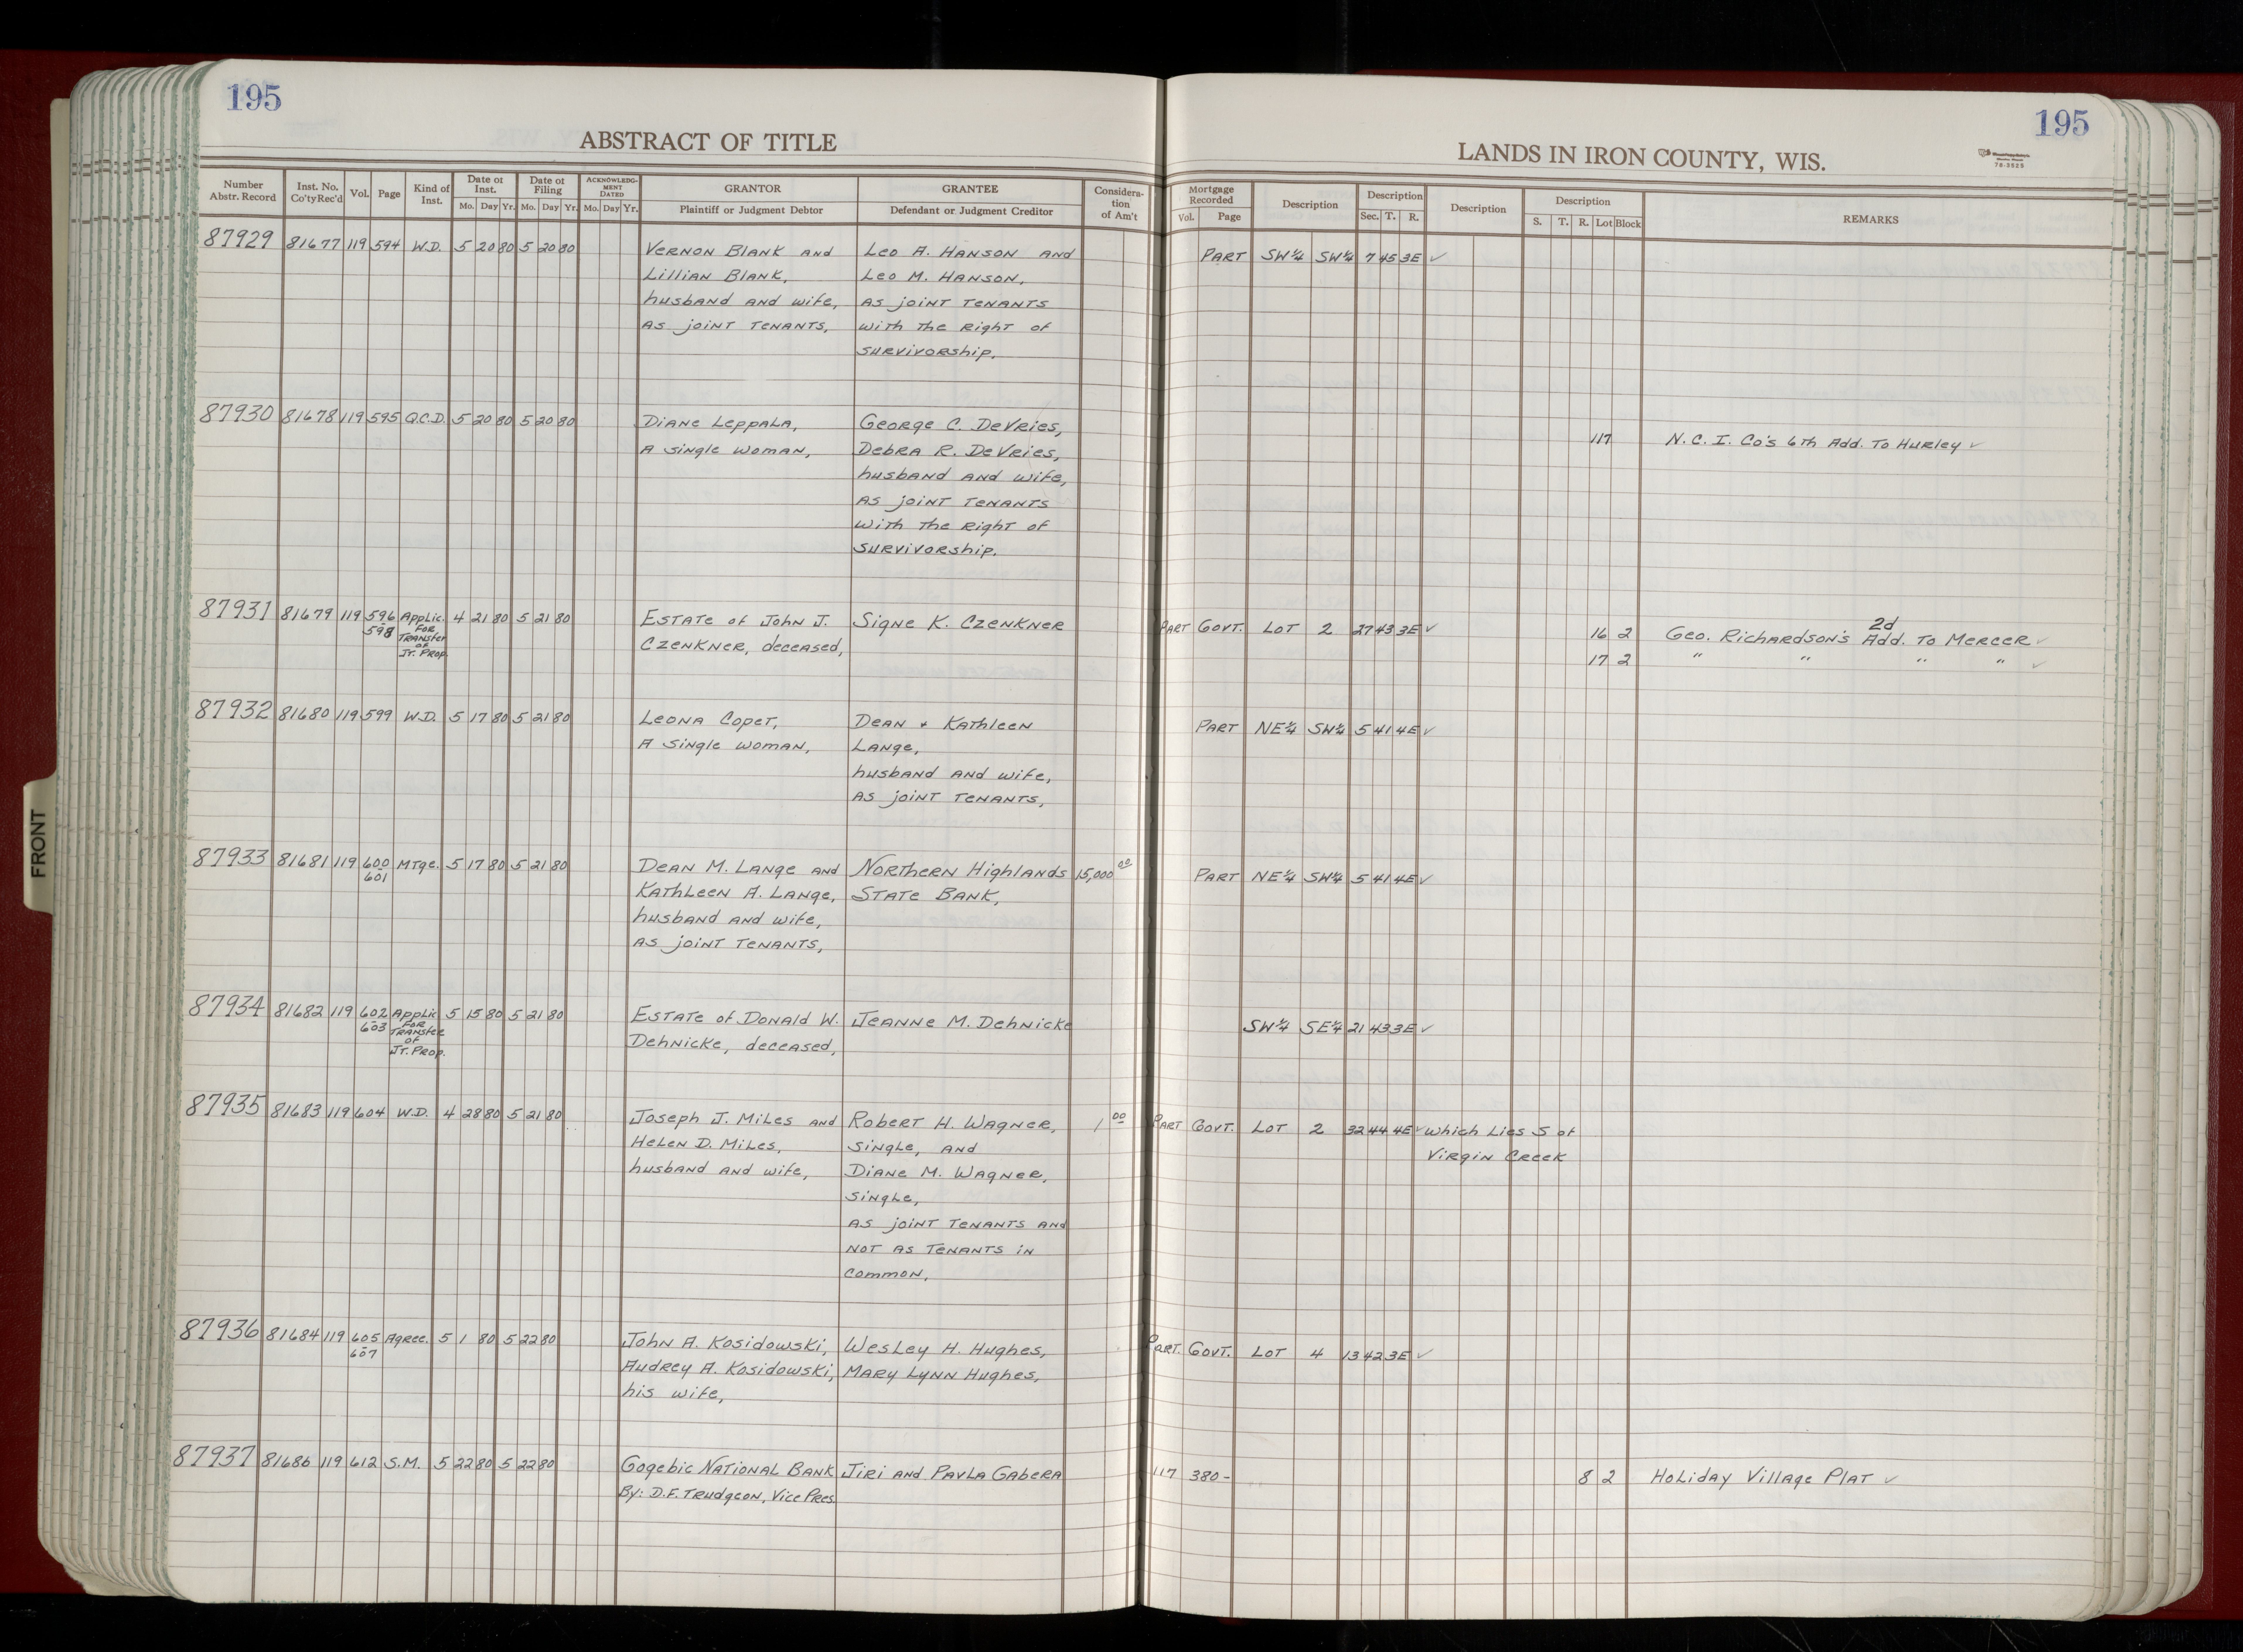 195
ABSTRACT OF TITLE
Number Abstr. Record | Inst. No. Co'ty Rec'd | Vol. | Page | Kind of Inst. | Date of Inst. Mo. Day Yr. | Date of Filing Mo. Day Yr. | ACKNOWLEDGMENT DATED Mo. Day Yr. | GRANTOR Plaintiff or Judgment Debtor | GRANTEE Defendant or Judgment Creditor | Consideration of Am't
195
LANDS IN IRON COUNTY, WIS.
Mortgage Recorded Vol. Page | Description | Description Sec. T. R. | Description | Description S. T. R. Lot Block | REMARKS
87929 81677 119 594 W.D. 5 20 80 5 20 80 Vernon Blank and Leo A. Hanson and PART SW¼ SW¼ 7 45 3E ✓
Lillian Blank, Leo M. Hanson,
husband and wife, as joint tenants
as joint tenants, with the right of
survivorship.
87930 81678 119 595 Q.C.D. 5 20 80 5 20 80 Diane Leppala, George C. DeVries, 117 N.C.I. Co's 6th Add. To Hurley ✓
a single woman, Debra R. DeVries,
husband and wife,
as joint tenants
with the right of
survivorship.
87931 81679 119 596 Applic. 4 21 80 5 21 80 Estate of John J. Signe K. Czenkner Part Govt. Lot 2 27 43 3E ✓ 16 2 Geo. Richardson's 2d Add. To Mercer ✓
598 for Transfer of Jt. Prop. Czenkner, deceased, 17 2 " " " " ✓
87932 81680 119 599 W.D. 5 17 80 5 21 80 Leona Copet, Dean + Kathleen Part NE¼ SW¼ 5 41 4E ✓
a single woman, Lange,
husband and wife,
as joint tenants,
87933 81681 119 600 Mtge. 5 17 80 5 21 80 Dean M. Lange and Northern Highlands 15,000 00 Part NE¼ SW¼ 5 41 4E ✓
601 Kathleen A. Lange, State Bank,
husband and wife,
as joint tenants,
87934 81682 119 602 Applic 5 15 80 5 21 80 Estate of Donald W. Jeanne M. Dehnicke SW¼ SE¼ 21 43 3E ✓
603 for Transfer of Jt. Prop. Dehnicke, deceased,
87935 81683 119 604 W.D. 4 28 80 5 21 80 Joseph J. Miles and Robert H. Wagner, 1 00 Part Govt. Lot 2 32 44 4E ✓ which lies S of
Helen D. Miles, single, and Virgin Creek
husband and wife, Diane M. Wagner,
single,
as joint tenants and
not as tenants in
common,
87936 81684 119 605 Agree. 5 1 80 5 22 80 John A. Kosidowski, Wesley H. Hughes, Part. Govt. Lot 4 13 42 3E ✓
607 Audrey A. Kosidowski, Mary Lynn Hughes,
his wife,
87937 81686 119 612 S.M. 5 22 80 5 22 80 Gogebic National Bank Jiri and Pavla Gabera 117 380- 8 2 Holiday Village Plat ✓
By: D.F. Trudgeon, Vice Pres.
FRONT